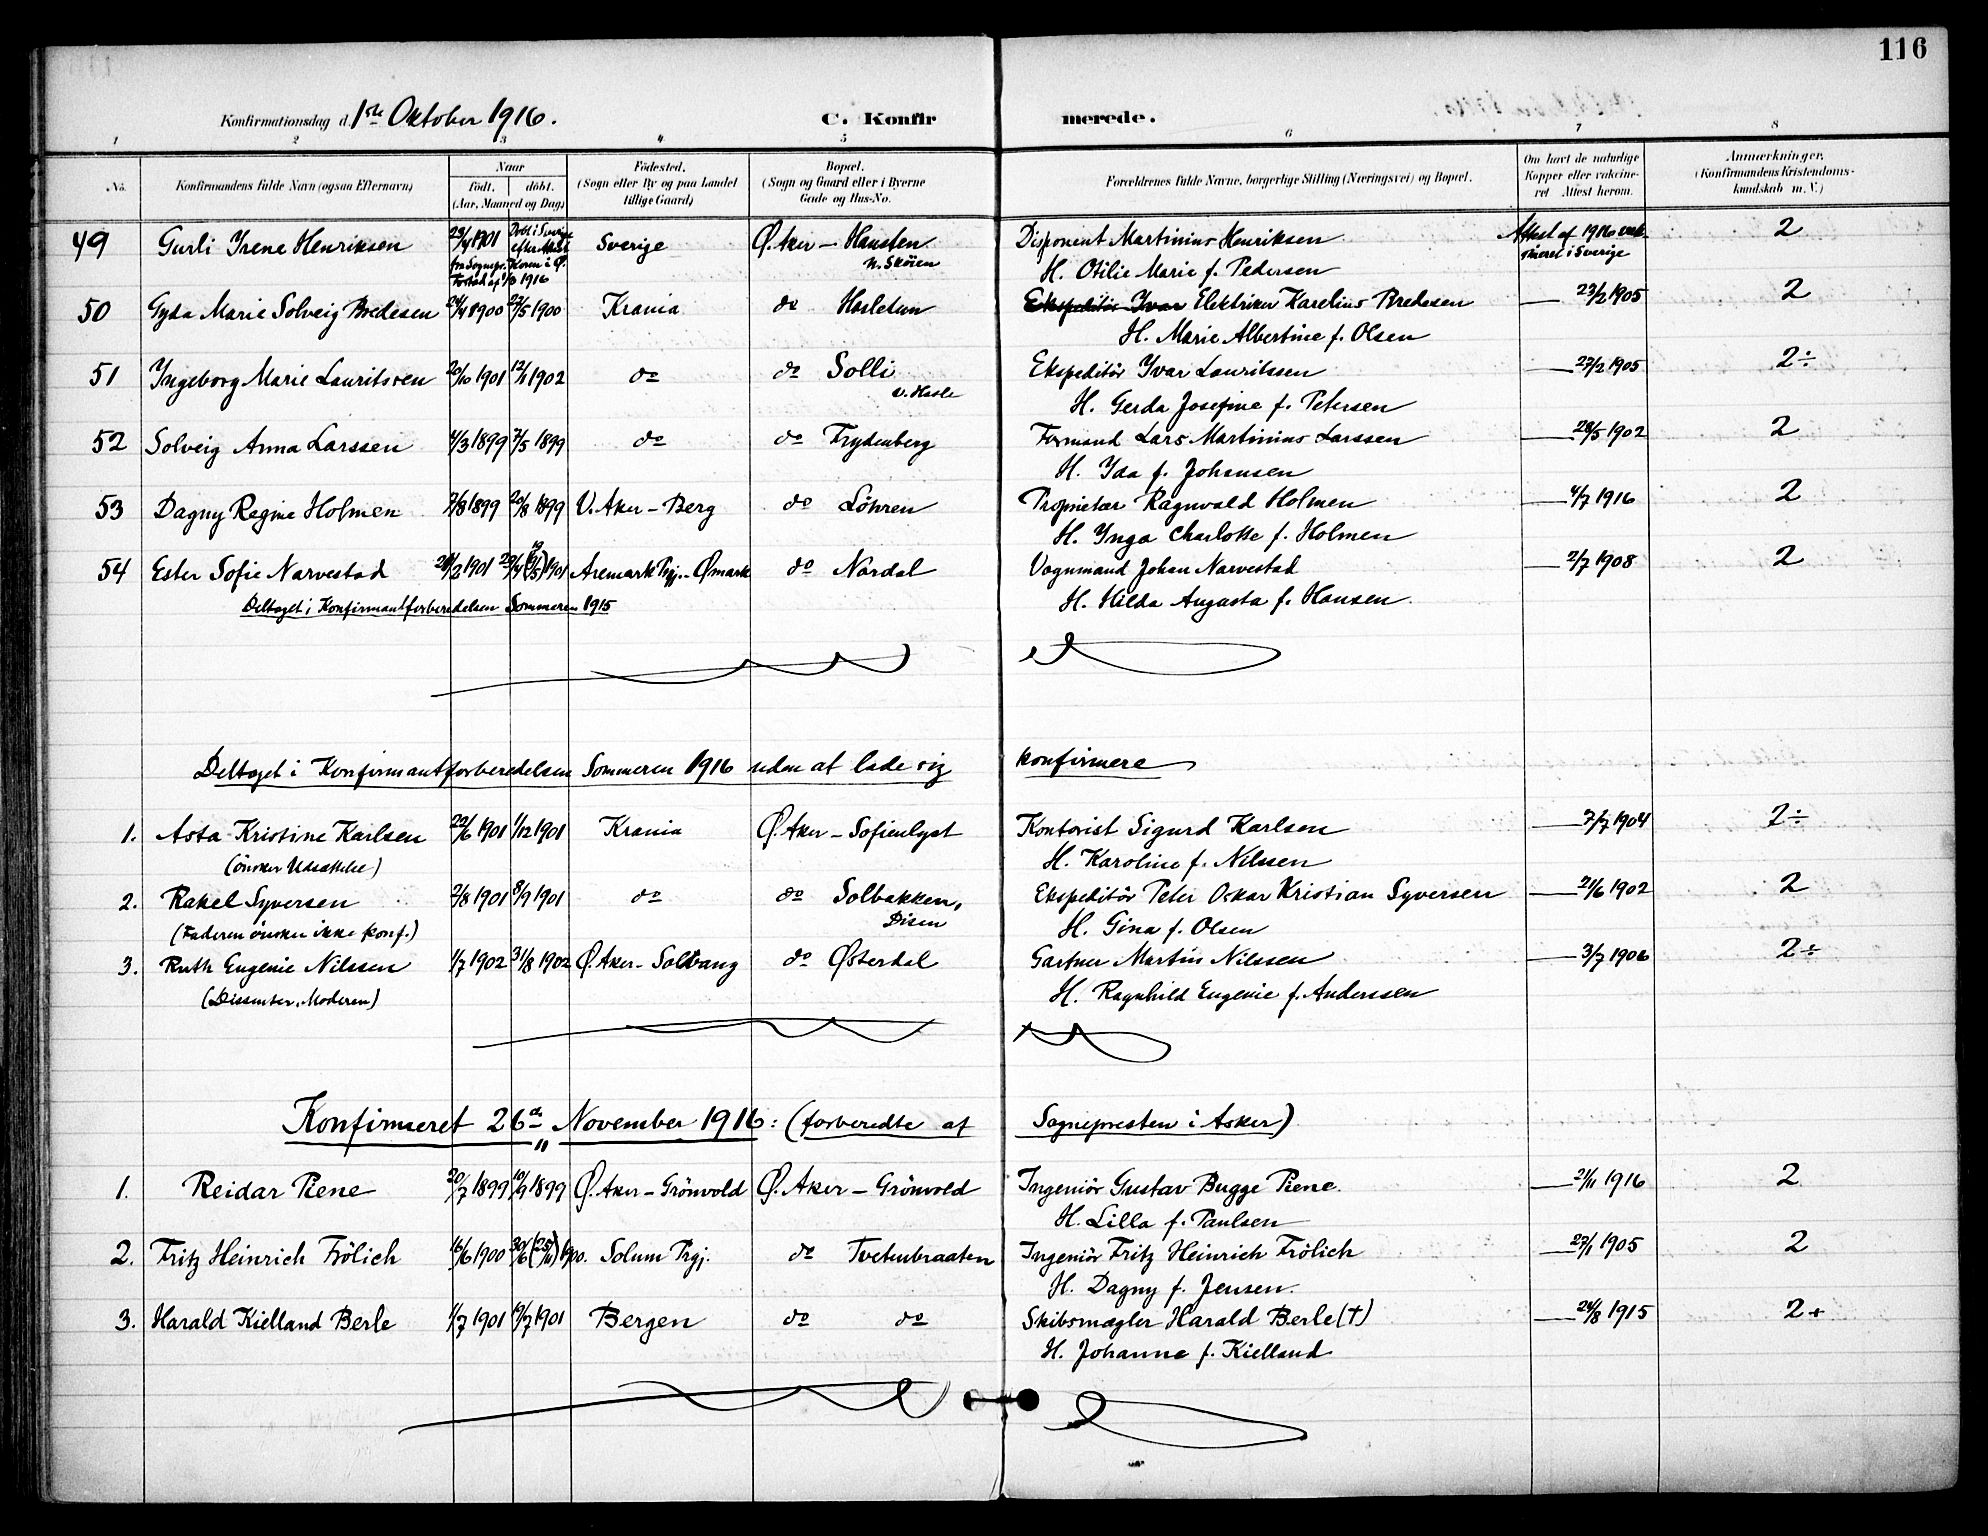 116
Konfirmationsdag d. 1ste Oktober 1916. C. Konfirmerede.
1 2 3 4 5 6 7 8
No. Konfirmandens fulde Navn (ogsaa Efternavn) Naar födt. döbt. (Aar, Maaned og Dag) Födested. (Sogn eller By og paa Landet tillige Gaard) Bopæl. (Sogn og Gaard eller i Byerne Gade og Hus-No. Forældrenes fulde Navne, borgerlige Stilling (Næringsvei) og Bopæl. Om havt de naturlige Kopper eller vakcineret Attest herom. Anmærkninger. (Konfirmandens Kristendomskundskab m. V.)
49 Gurli Irene Henriksen 23/4 1901 Döbt i Sverige efter Attest Sverige Ø. Aker - Hausten Disponent Martinius Henriksen Attest af 1916 vak- 2
fra Sognepr. Koren i Ø. n. Sköien H. Otilie Marie f. Pedersen cineret i Sverige
1916
50 Gyda Marie Solveig Bredesen 24/4 8900 27/5 1900 Krania do Hasletun Ekspeditör Ivar Elektriker Karelius Bredesen — 23/2 1905 2
H. Marie Albertine f. Olsen
51 Ingeborg Marie Lauritssen 20/10 1901 12/1 1902 do do Solli Ekspeditör Ivar Lauritssen — 27/2 1905 2÷
v. Hasle H. Gerda Josefine f. Petersen
52 Solveig Anna Larssen 4/3 1899 7/5 1899 do do Frydenberg Formand Lars Martinius Larssen — 28/5 1902 2
H. Ida f. Johansen
53 Dagny Regine Holmen 7/8 1899 20/8 1899 V. Aker - Berg do Löhren Proprietær Ragnvald Holmen — 4/7 1916 2
H. Inga Charlotte f. Holmen
54 Ester Sofie Narvestad 21/2 1901 1901 Aremark Prgj. - Ømark do Nordal Vognmand Johan Narvestad — 2/7 1908 2
Deltaget i Konfirmantforberedelsen Sommeren 1915 H. Hilda Augusta f. Hansen
Deltaget i Konfirmantforberedelsen Sommeren 1916 uden at lade sig konfirmere
1. Asta Kristine Karlsen 22/6 1901 1/12 1901 Krania Ø. Aker - Sofienlyst Kontorist Sigurd Karlsen — 7/7 1904 2÷
(önsker Udsættelse) H. Karoline f. Nilssen
2. Rakel Syversen 2/8 1901 8/9 1901 do do Solbakken, Ekspeditör Peter Oskar Kristian Syversen — 21/6 1902 2
(Faderen önsker ikke konf.) Disen H. Gina f. Olsen
3. Ruth Eugenie Nilssen 1/7 1902 31/8 1902 Ø. Aker - Solvang do Østerdal Gartner Martin Nilssen — 3/7 1906 2÷
(Dissenter, Moderen) H. Ragnhild Eugenie f. Anderssen
Konfirmeret 26de November 1916: (forberedte af Sognepresten i Asker)
1. Reidar Piene 20/7 1899 10/9 1899 Ø. Aker - Grönvold Ø. Aker - Grönvold Ingeniör Gustav Bugge Piene. — 21/11 1916 2
H. Lilla f. Paulsen
2. Fritz Heinrich Frölich 16/6 1900 30/6 (25/11) 1900. Solum Prgj. do Tvetenbraaten Ingeniör Fritz Heinrich Frölich — 27/1 1905 2
H. Dagny f. Jensen.
3. Harald Kielland Berle 1/7 1901 19/7 1901 Bergen do do Skibsmægler Harald Berle (†) — 24/8 1915 2+
H. Johanne f. Kielland